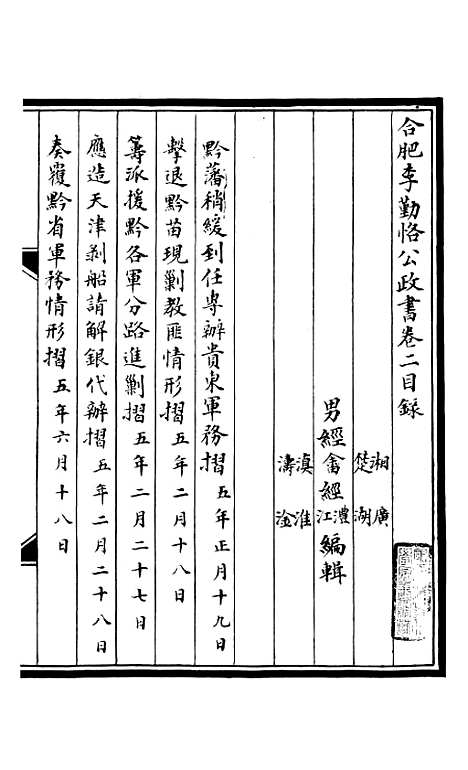 合肥李勤恪公政書卷二目錄
湘 廣
楚 湖
男經畬經澧編輯
江
滇 淮
濤 淦
黔藩稍緩到任專辦貴東軍務摺 五年正月十九日
擊退黔苗現剿教匪情形摺 五年二月十八日
籌派援黔各軍分路進剿摺 五年二月二十七日
應造天津剥船請解銀代辦摺 五年二月二十八日
奏覆黔省軍務情形摺 五年六月十八日